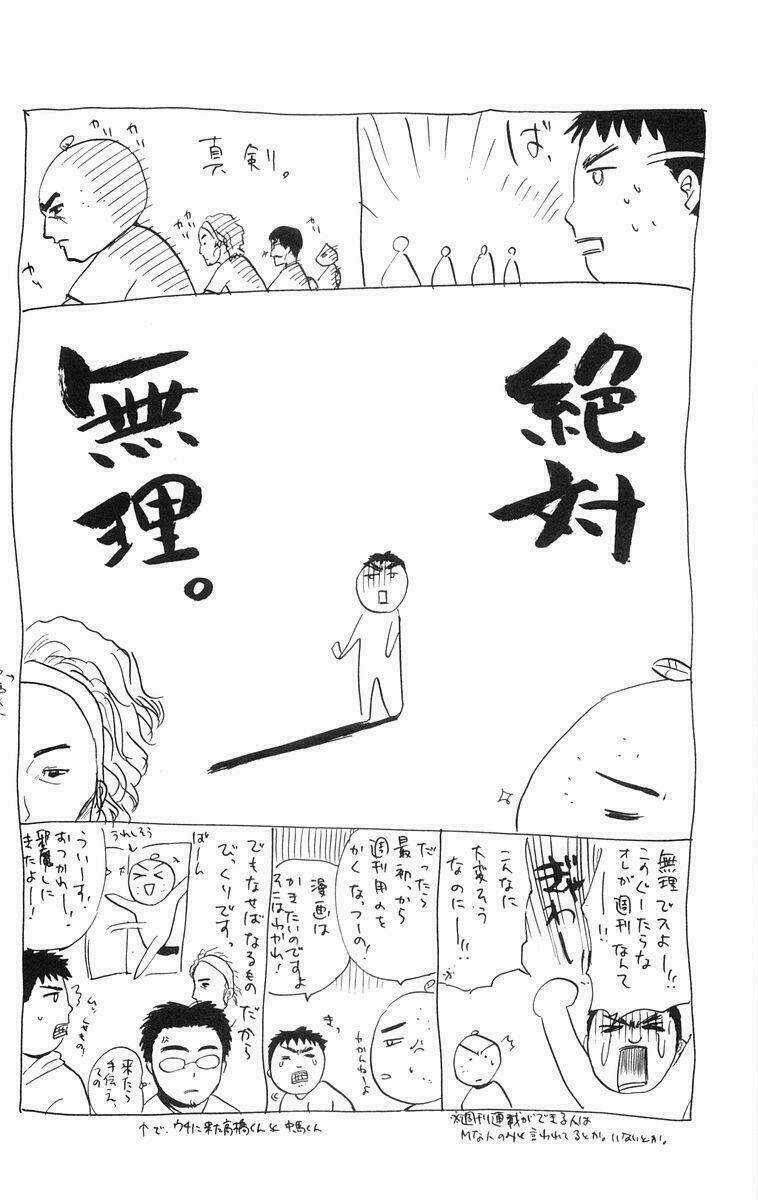 ば、
真剣。
ガガガ
ガガ
ガガ
絶対
無理。
無理でスよー!!
このぐーたらな
オレが週刊なんて
ぎゃー
こんなに
大変そう
なのにー!!
だったら
最初から
週刊用のを
かくなっつーの!
わかんねーよ
漫画は
かきたいのですよ
そこはわかれ!
きっ
でもなせばなるもの だから
びっくりですっ
ばーん
うれしそう
うぃーす。
おつかれー!
邪魔しに
きたよー!
来たら
手伝えっ
その
※週刊連載ができる人は
Mな人のみと言われてるとか。いないとか。
↑で、ウチに来た高橋くんと中馬くん